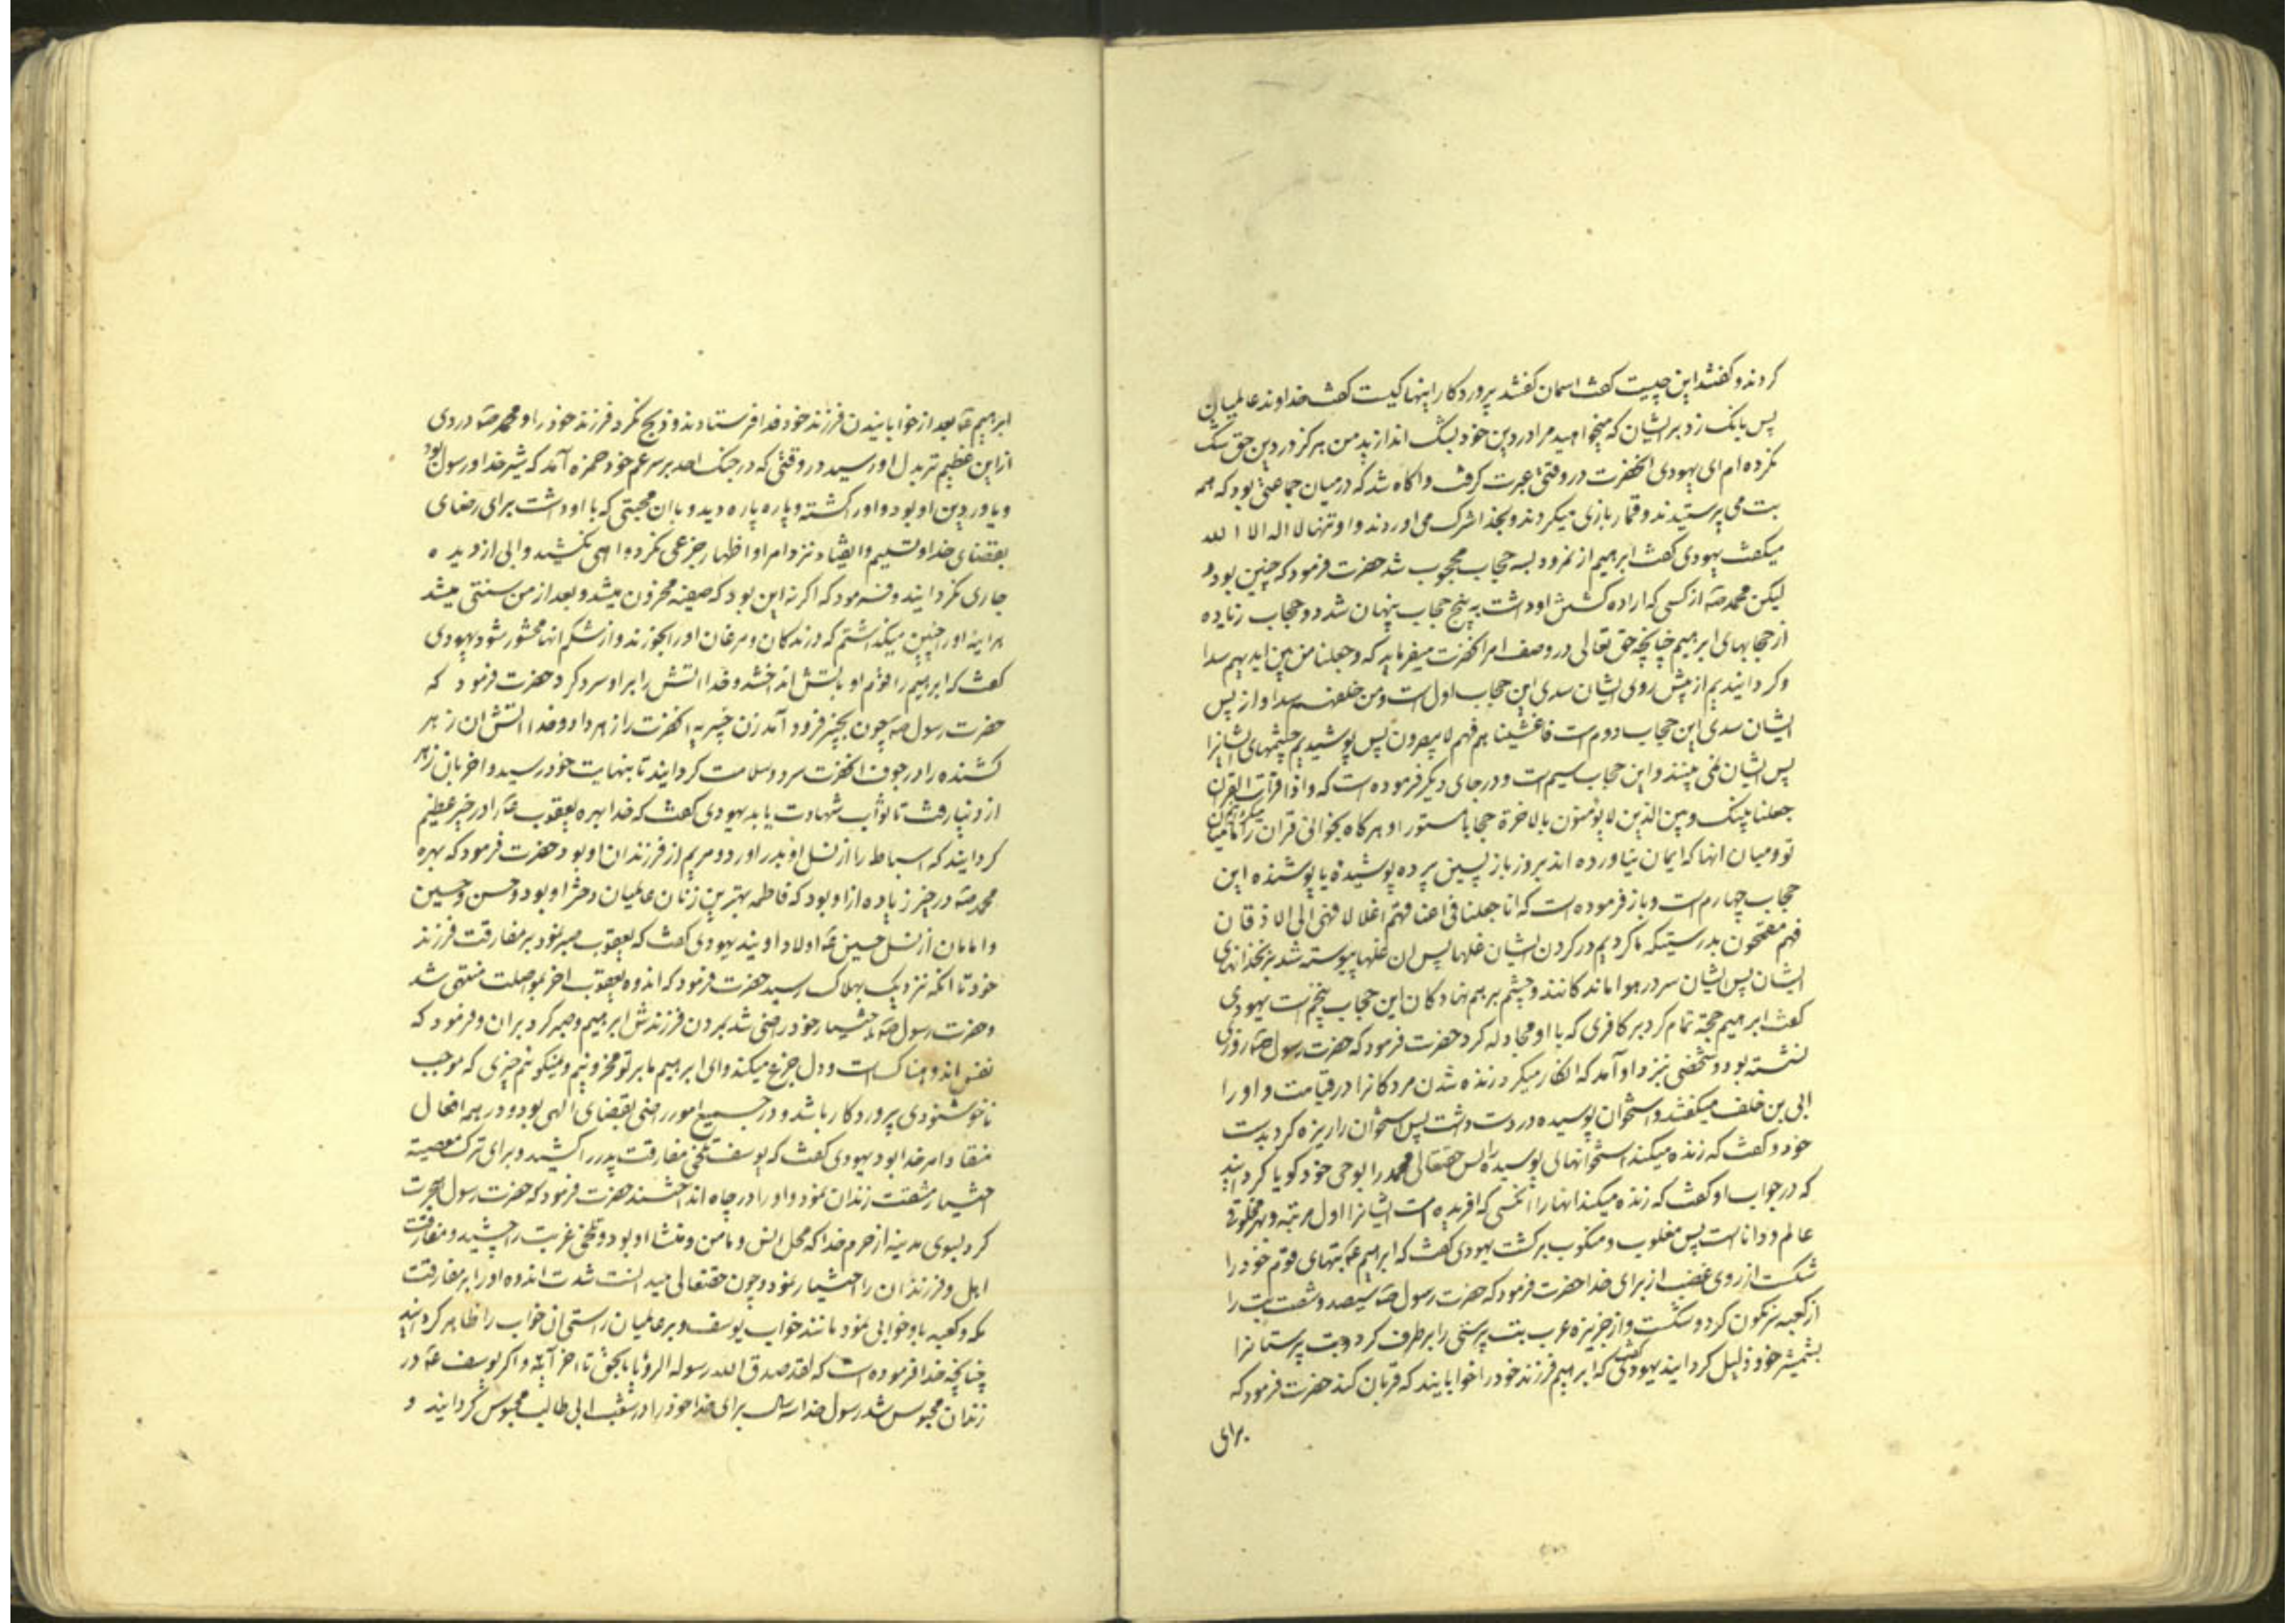 کردند و کفتند این چیست کفت اسمان کفتند پروردکار اینها کیست کفت خداوند عالمیان
پس بانک زد بر ایشان که میخواهید مرا در دین خود بشک اندازید من هرکز در دین حق شک
نکرده ام ای یهودی انحضرت در وقتی عبرت کرفت و اکاه شد که در میان جماعتی بود که همه
بت می پرستیدند و قمار بازی میکردند و بخدا شرک می اوردند و او تنها لا اله الا الله
میکفت یهودی کفت ابراهیم از نمرود بسه حجاب محجوب شد حضرت فرمود که چنین بود و
لیکن محمد صه از کسی که اراده کشتن او داشت به پنج حجاب پنهان شد دو حجاب زیاده
از حجابهای ابراهیم چنانچه حق تعالی در وصف امر انحضرت میفرماید که و جعلنا من بین ایدیهم سدا
و کردانیدیم از پیش روی ایشان سدی این حجاب اول است و من خلفهم سدا و از پس
ایشان سدی این حجاب دوم است فاغشیناهم فهم لا یبصرون پس پوشیدیم چشمهای ایشانرا
پس ایشان نمی بینند و این حجاب سیم است و در جای دیکر فرموده است که و اذا قرات القران
جعلنا بینک و بین الذین لا یؤمنون بالاخرة حجابا مستورا و هرکاه بخوانی قران را میکردانیم میان
تو و میان انها که ایمان نیاورده اند بروز باز پسین پرده پوشیده یا پوشنده این
حجاب چهارم است و باز فرموده است که انا جعلنا فی اعناقهم اغلالا فهی الی الاذقان
فهم مقمحون بدرستیکه ما کردیم در کردن ایشان غلها پس ان غلها پیوسته شد بزنخدانهای
ایشان پس ایشان سر در هوا ماندکانند و چشم بر هم نهادکان این حجاب پنجم است یهودی
کفت ابراهیم حجة تمام کرد بر کافری که با او مجادله کرد حضرت فرمود که حضرت رسول صه روزی
نشسته بود و شخصی بنزد او آمد که انکار میکرد زنده شدن مردکانرا در قیامت و او را
ابی بن خلف میکفتند و استخوان پوسیده در دست داشت پس استخوان را ریزه کرد بدست
خود و کفت که زنده میکند استخوانهای پوسیده را پس حقتعالی محمد را بوحی خود کویا کردانید
که در جواب او کفت که زنده میکند انها را انکسی که افریده است ایشانرا اول مرتبه و بهر مخلوقی
عالم و دانا است پس مغلوب و منکوب برکشت یهودی کفت که ابراهیم عه بتهای قوم خود را
شکست از روی غضب از برای خدا حضرت فرمود که حضرت رسول صه سیصد و شصت بت را
از کعبه سرنکون کرد و شکست و از جزیره عرب بت پرستی را برطرف کرد و بت پرستانرا
بشمشیر خود ذلیل کردانید یهودی کفت که ابراهیم فرزند خود را خوابانید که قربان کند حضرت فرمود که
برای
ابراهیم عه بعد از خوابانیدن فرزند خود فدا فرستادند و ذبح نکرد فرزند خود را و محمد صه دردی
از این عظیم تر بدل او رسید در وقتی که در جنک احد بر سر عم خود حمزه آمد که شیر خدا و رسول بود
و یاور دین او بود و او را کشته و پاره پاره دید و با ان محبتی که با او داشت برای رضای
بقضای خدا و تسلیم و انقیاد نزد امر او اظهار جزعی نکرد و اهی نکشید و ابی از دیده
جاری نکردانید و فرمود که اکر نه این بود که صفیه محزون میشد و بعد از من سنتی میشد
هراینه او را چنین میکذاشتم که درندکان و مرغان او را بخورند و از شکم انها محشور شود یهودی
کفت که ابراهیم را قوم او باتش انداختند و خدا اتش را بر او سرد کرد حضرت فرمود که
حضرت رسول صه چون بخیبر فرود آمد زن خیبریه انحضرت را زهر داد و خدا اتش ان زهر
کشنده را در جوف انحضرت سرد و سلامت کردانید تا بنهایت خود رسید و اخر بان زهر
از دنیا رفت تا ثواب شهادت یابد یهودی کفت که خدا بهره یعقوب عه را در خیر عظیم
کردانید که اسباط را از نسل او بدر اورد و مریم از فرزندان او بود حضرت فرمود که بهره
محمد صه در خیر زیاده از او بود که فاطمه بهترین زنان عالمیان دختر او بود و حسن و حسین
و امامان از نسل حسین عه اولاد اویند یهودی کفت که یعقوب صبر نمود بر مفارقت فرزند
خود تا انکه نزدیک بهلاک رسید حضرت فرمود که اندوه یعقوب اخر بمواصلت منتهی شد
و حضرت رسول صه باختیار خود راضی شد بمردن فرزندش ابراهیم و صبر کرد بر ان و فرمود که
نفس اندوهناک است و دل جزع میکند و ای ابراهیم ما بر تو محزونیم و نمیکوئیم چیزی که موجب
ناخوشنودی پروردکار باشد و در جمیع امور راضی بقضای الهی بود و در همه افعال
منقاد امر خدا بود یهودی کفت که یوسف تلخی مفارقت پدر را کشید و برای ترک معصیة
اختیار مشقت زندان نمود و او را در چاه انداختند حضرت فرمود که حضرت رسول هجرت
کرد بسوی مدینه از حرم خدا که محل انس و مامن و منشا او بود و تلخی غربت را چشید و مفارقت
اهل و فرزندان را اختیار نمود و چون حقتعالی میدانست شدت اندوه او را بر مفارقت
مکه و کعبه باو خوابی نمود مانند خواب یوسف و بر عالمیان راستی ان خواب را ظاهر کردانید
چنانچه خدا فرموده است که لقد صدق الله رسوله الرؤیا بالحق تا اخر آیة و اکر یوسف عه در
زندان محبوس شد رسول خدا سه سال برای خدا خود را در شعب ابی طالب محبوس کردانید و